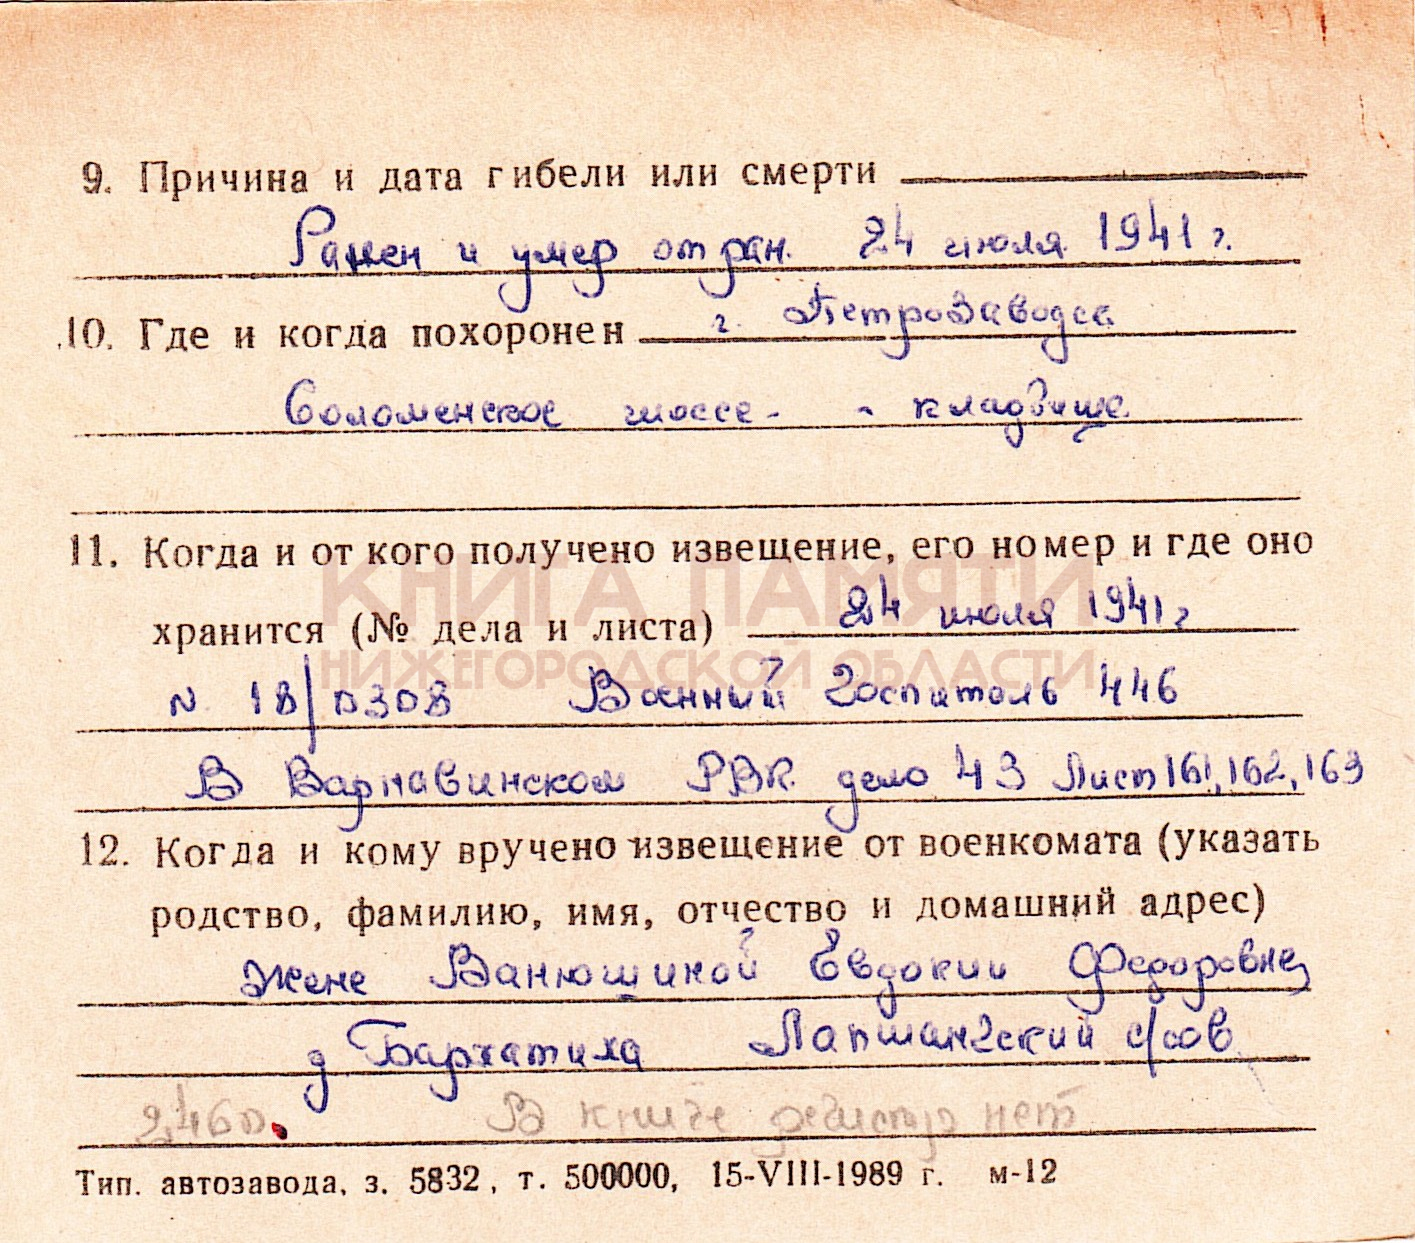 9. Причина и дата гибели или смерти
Ранен и умер от ран. 24 июля 1941 г.
10. Где и когда похоронен г. Петрозаводск
Соломенское шоссе - - кладбище
11. Когда и от кого получено извещение, его номер и где оно
КНИГА ПАМЯТИ
хранится (№ дела и листа) 24 июля 1941 г
НИЖЕГОРОДСКОЙ ОБЛАСТИ
N 18/0308 Военний госпиталь 446
В Варнавинском РВК дело 43 Лист 161, 162, 163
12. Когда и кому вручено извещение от военкомата (указать
родство, фамилию, имя, отчество и домашний адрес)
Жене Ванюшиной Евдокии Федоровне,
д Бархатиха Лапшангский с/сов
В книге регистр нет
Тип. автозавода, з. 5832, т. 500000, 15-VIII-1989 г. м-12